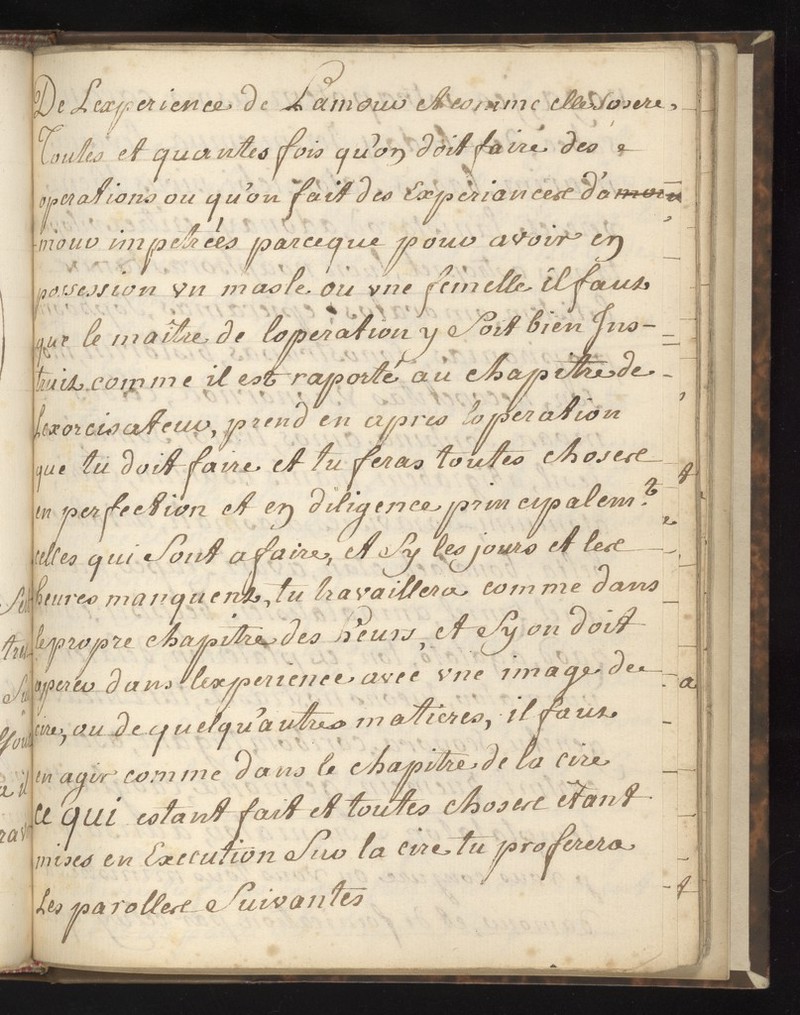 De Lexperience de Lamour et comme elle Sopere,
Toutes et quantes fois qu'on doit faire des
operations ou qu'on fait des Experiances d'amou
mour impetrées parceque pour avoir en
possession vn masle ou vne femelle il faut
que le maître de loperation y Soit bien Ins-
truit comme il est raporté au chapître de
Lexorcisateur, prend en apres loperation
que tu doit faire et tu feras toutes choses
en perfection et en diligence principalemt
celles qui Sont a faire, et Sy les jours et les
heures manquent, tu travaillera comme dans
le propre chapitre des heurs, et Sy on doit
aperer dans lexperience avec vne image de
cire, ou de quelqu'autres matieres, il faut
en agir comme dans le chapitre de la cire
ce qui estant fait et toutes choses êtant
mises en Execution Sur la cire tu proferera
Les parolles Suivantes